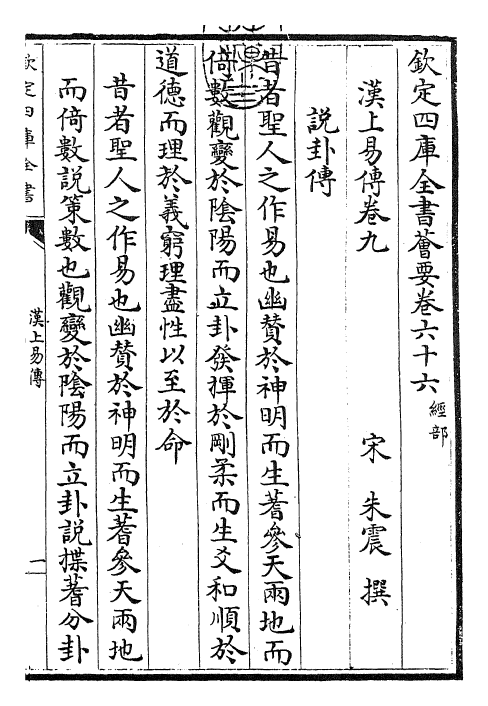 欽定四庫全書薈要卷六十六 經部
漢上易傳卷九 宋 朱震 撰
說卦傳
昔者聖人之作易也幽贊於神明而生蓍參天兩地而
倚數觀變於陰陽而立卦發揮於剛柔而生爻和順於
道德而理於義窮理盡性以至於命
昔者聖人之作易也幽贊於神明而生蓍參天兩地
而倚數說策數也觀變於陰陽而立卦說揲蓍分卦
欽定四庫全書
漢上易傳
一